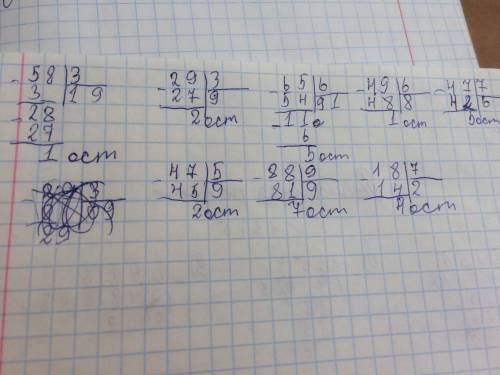 -58|3
3|19
-28
27
1 ост
-29|3
27|9
2ост
-65|6
54|91
-11
6
5ост
-49|6
48|8
1ост
-47|7
42|6
5ост
-47|5
45|9
2ост
-88|9
81|9
7ост
-18|7
14|2
4ост
29